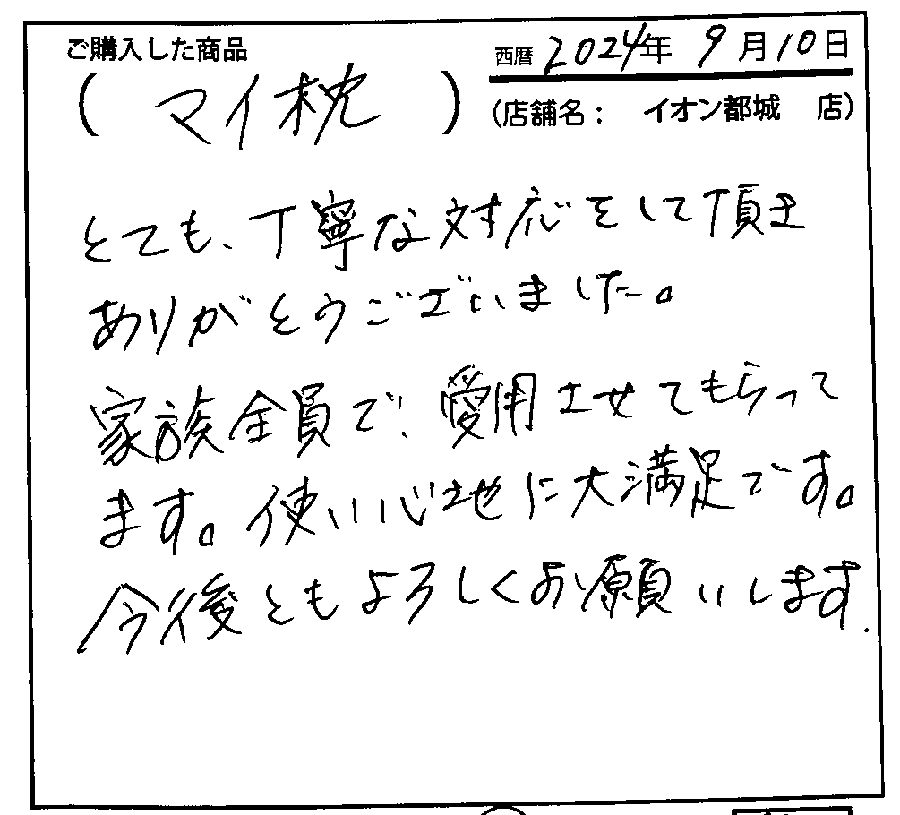 ご購入した商品
西暦 2024年 9月10日
( マイ枕 )
(店舗名: イオン都城 店)
とても、丁寧な対応をして頂き
ありがとうございました。
家族全員で、愛用させてもらって
ます。使い心地に大満足です。
今後ともよろしくお願いします.